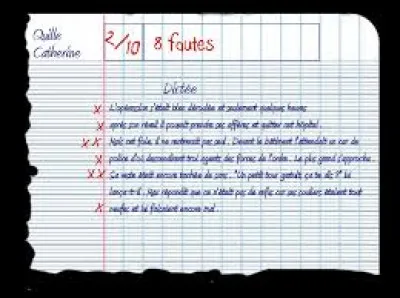 Quille
Catherine
2/10
8 fautes
Dictée
L'opération s'était bien déroulée et seulement quelques heures
après son réveil il pouvait prendre ses affaires et quitter cet hôpital.
Mais cet fois, il ne rentrerait pas seul. Devant le bâtiment l'attendait un car de
police d'où descendirent trois agents des forces de l'ordre. Le plus grand s'approcha.
Sa veste était encore tachée de sang. "Un petit tour gratuit, ça te dis ?" lui
lança-t-il. Max répondit que ce n'était pas de refus car ses souliers étaient tout
neufs et le faisaient encore mal.